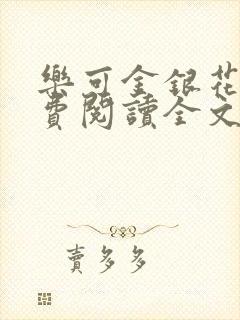 樂可金銀花
費閱讀全文
賣多多